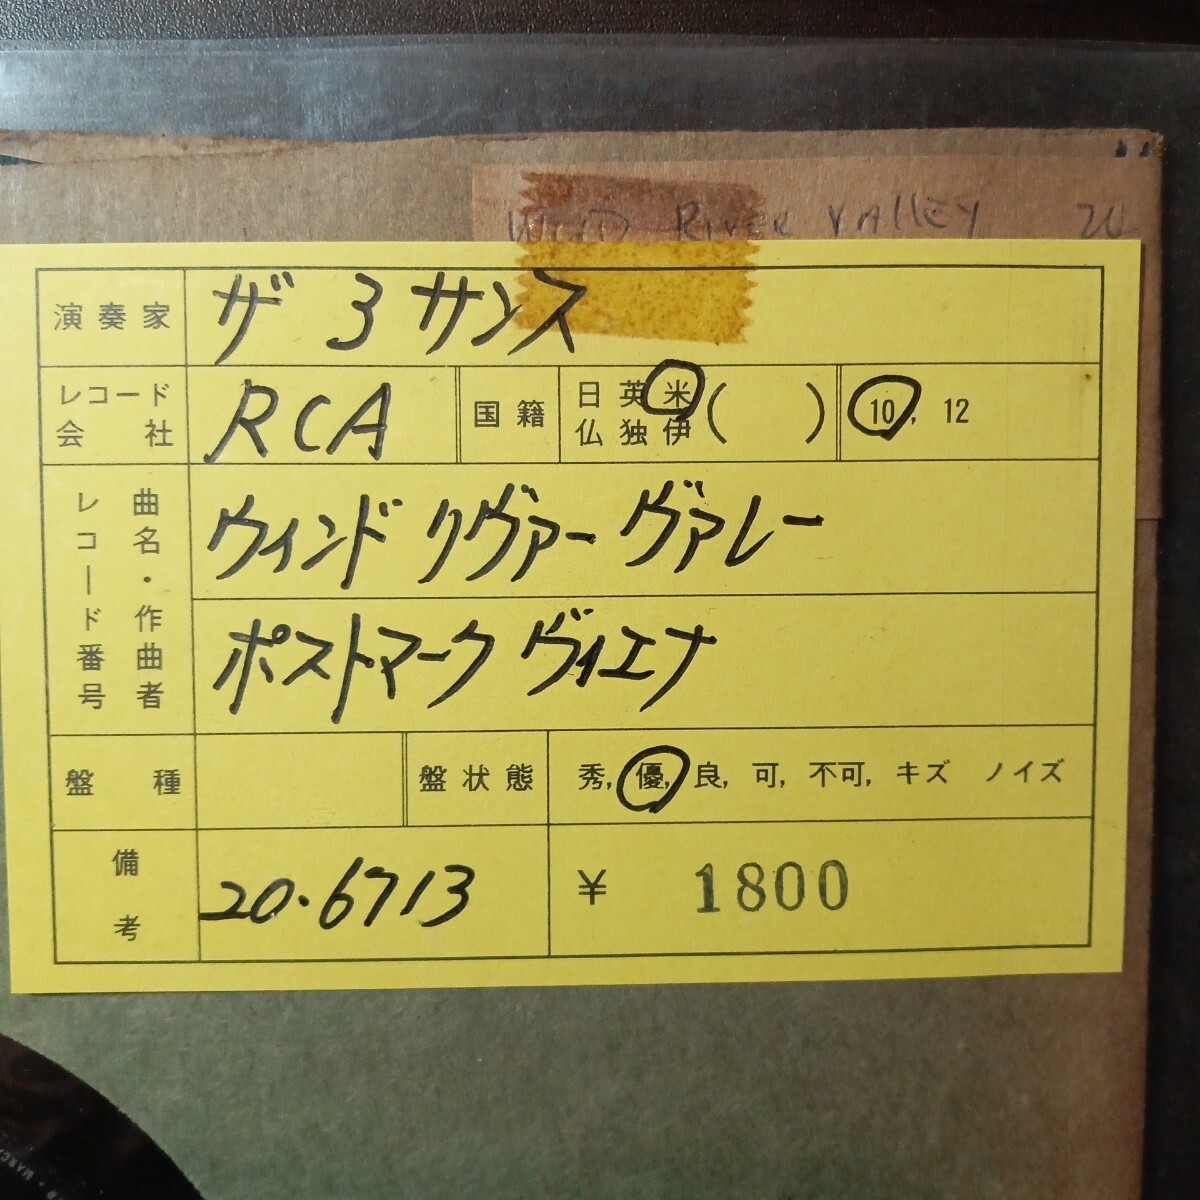 WIND RIVER VALLEY
演奏家 ザ 3 サンス
レコード会社 RCA 国籍 日 英 米 仏 独 伊 ( ) 10, 12
曲名・作曲者 レコード番号
ウィンド リヴァー ヴァレー
ポストマーク ヴィエナ
盤種 盤状態 秀, 優, 良, 可, 不可, キズ ノイズ
備考 20・6713 ¥ 1800